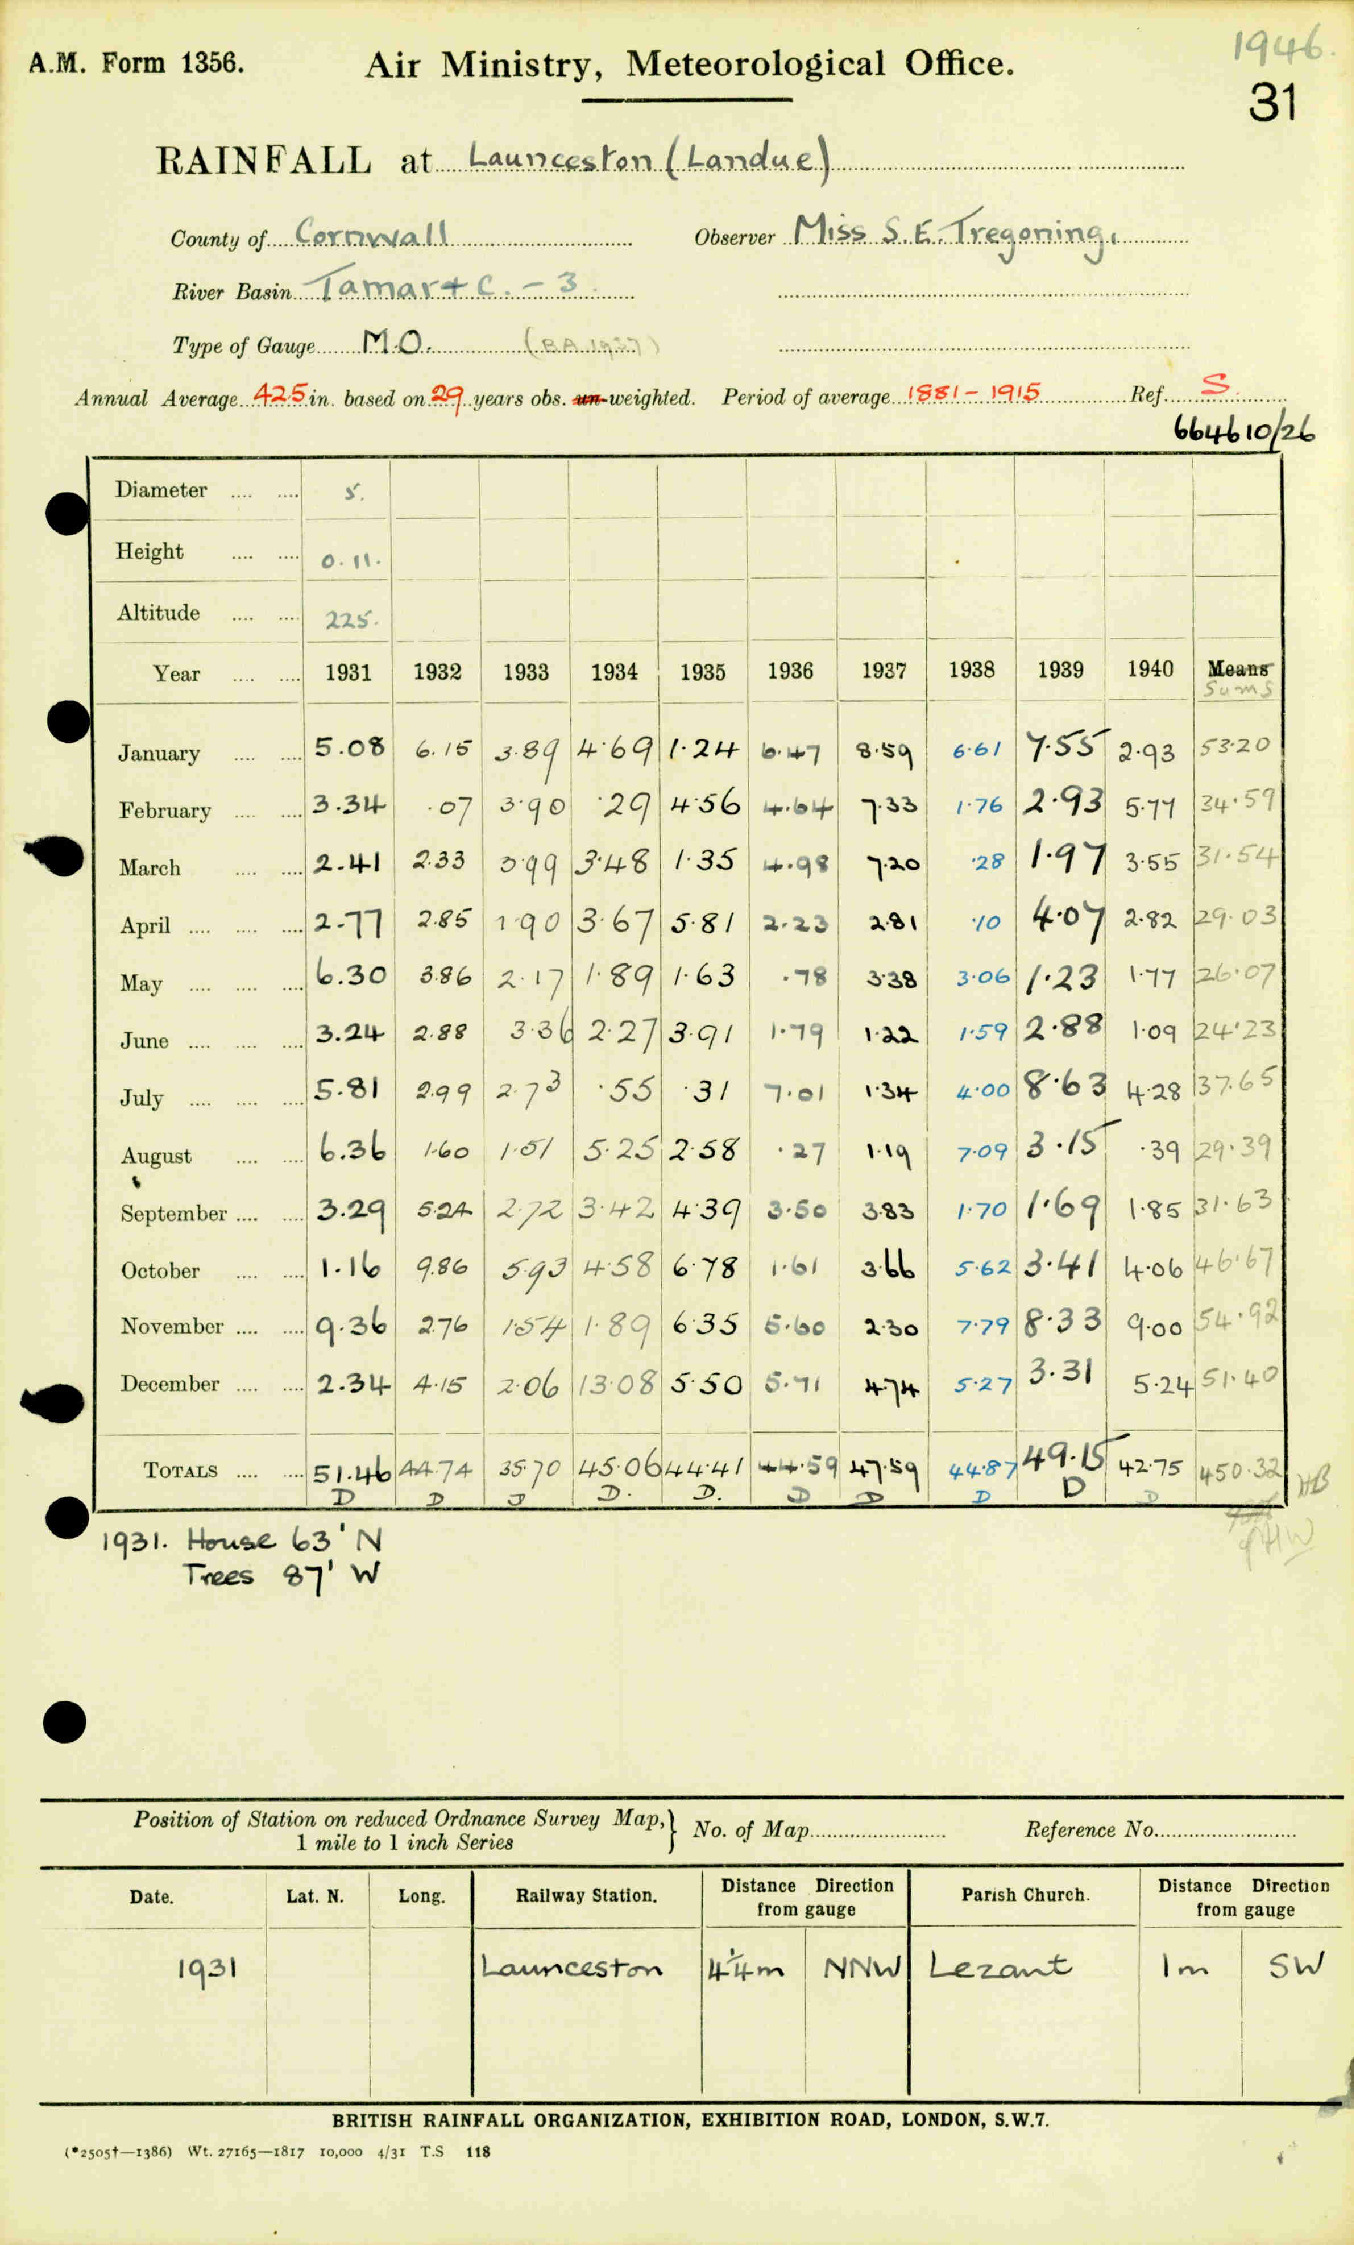 1946.
A.M. Form 1356. Air Ministry, Meteorological Office.
31
RAINFALL at Launceston (Landue)
County of Cornwall Observer Miss S. E. Tregoning,
River Basin Tamar + C. - 3
Type of Gauge M.O. (B.A. 1937)
Annual Average 42.5 in. based on 29 years obs. un-weighted. Period of average 1881 - 1915 Ref. S
664610/26
Diameter 5.
Height 0. 11.
Altitude 225.
Year 1931 1932 1933 1934 1935 1936 1937 1938 1939 1940 Means
Sums
January 5.08 6.15 3.89 4.69 1.24 6.47 8.59 6.61 7.55 2.93 53.20
February 3.34 .07 3.90 .29 4.56 4.64 7.33 1.76 2.93 5.77 34.59
March 2.41 2.33 3.99 3.48 1.35 4.98 7.20 .28 1.97 3.55 31.54
April 2.77 2.85 1.90 3.67 5.81 2.23 2.81 .10 4.07 2.82 29.03
May 6.30 3.86 2.17 1.89 1.63 .78 3.38 3.06 1.23 1.77 26.07
June 3.24 2.88 3.36 2.27 3.91 1.79 1.22 1.59 2.88 1.09 24.23
July 5.81 2.99 2.73 .55 .31 7.01 1.34 4.00 8.63 4.28 37.65
August 6.36 1.60 1.51 5.25 2.58 .27 1.19 7.09 3.15 .39 29.39
September 3.29 5.24 2.72 3.42 4.39 3.50 3.83 1.70 1.69 1.85 31.63
October 1.16 9.86 5.93 4.58 6.78 1.61 3.66 5.62 3.41 4.06 46.67
November 9.36 2.76 1.54 1.89 6.35 5.60 2.30 7.79 8.33 9.00 54.92
December 2.34 4.15 2.06 13.08 5.50 5.71 4.74 5.27 3.31 5.24 51.40
TOTALS 51.46 44.74 35.70 45.06 44.41 44.59 47.59 44.87 49.15 42.75 450.32 HB
D D D D. D. D D D D D
1931. House 63' N
Trees 87' W
Position of Station on reduced Ordnance Survey Map, No. of Map Reference No.
1 mile to 1 inch Series
Date. Lat. N. Long. Railway Station. Distance Direction from gauge Parish Church. Distance Direction from gauge
1931 Launceston 4¼m NNW Lezant 1m SW
BRITISH RAINFALL ORGANIZATION, EXHIBITION ROAD, LONDON, S.W.7.
(*2505†—1386) Wt. 27165—1817 10,000 4/31 T.S 118